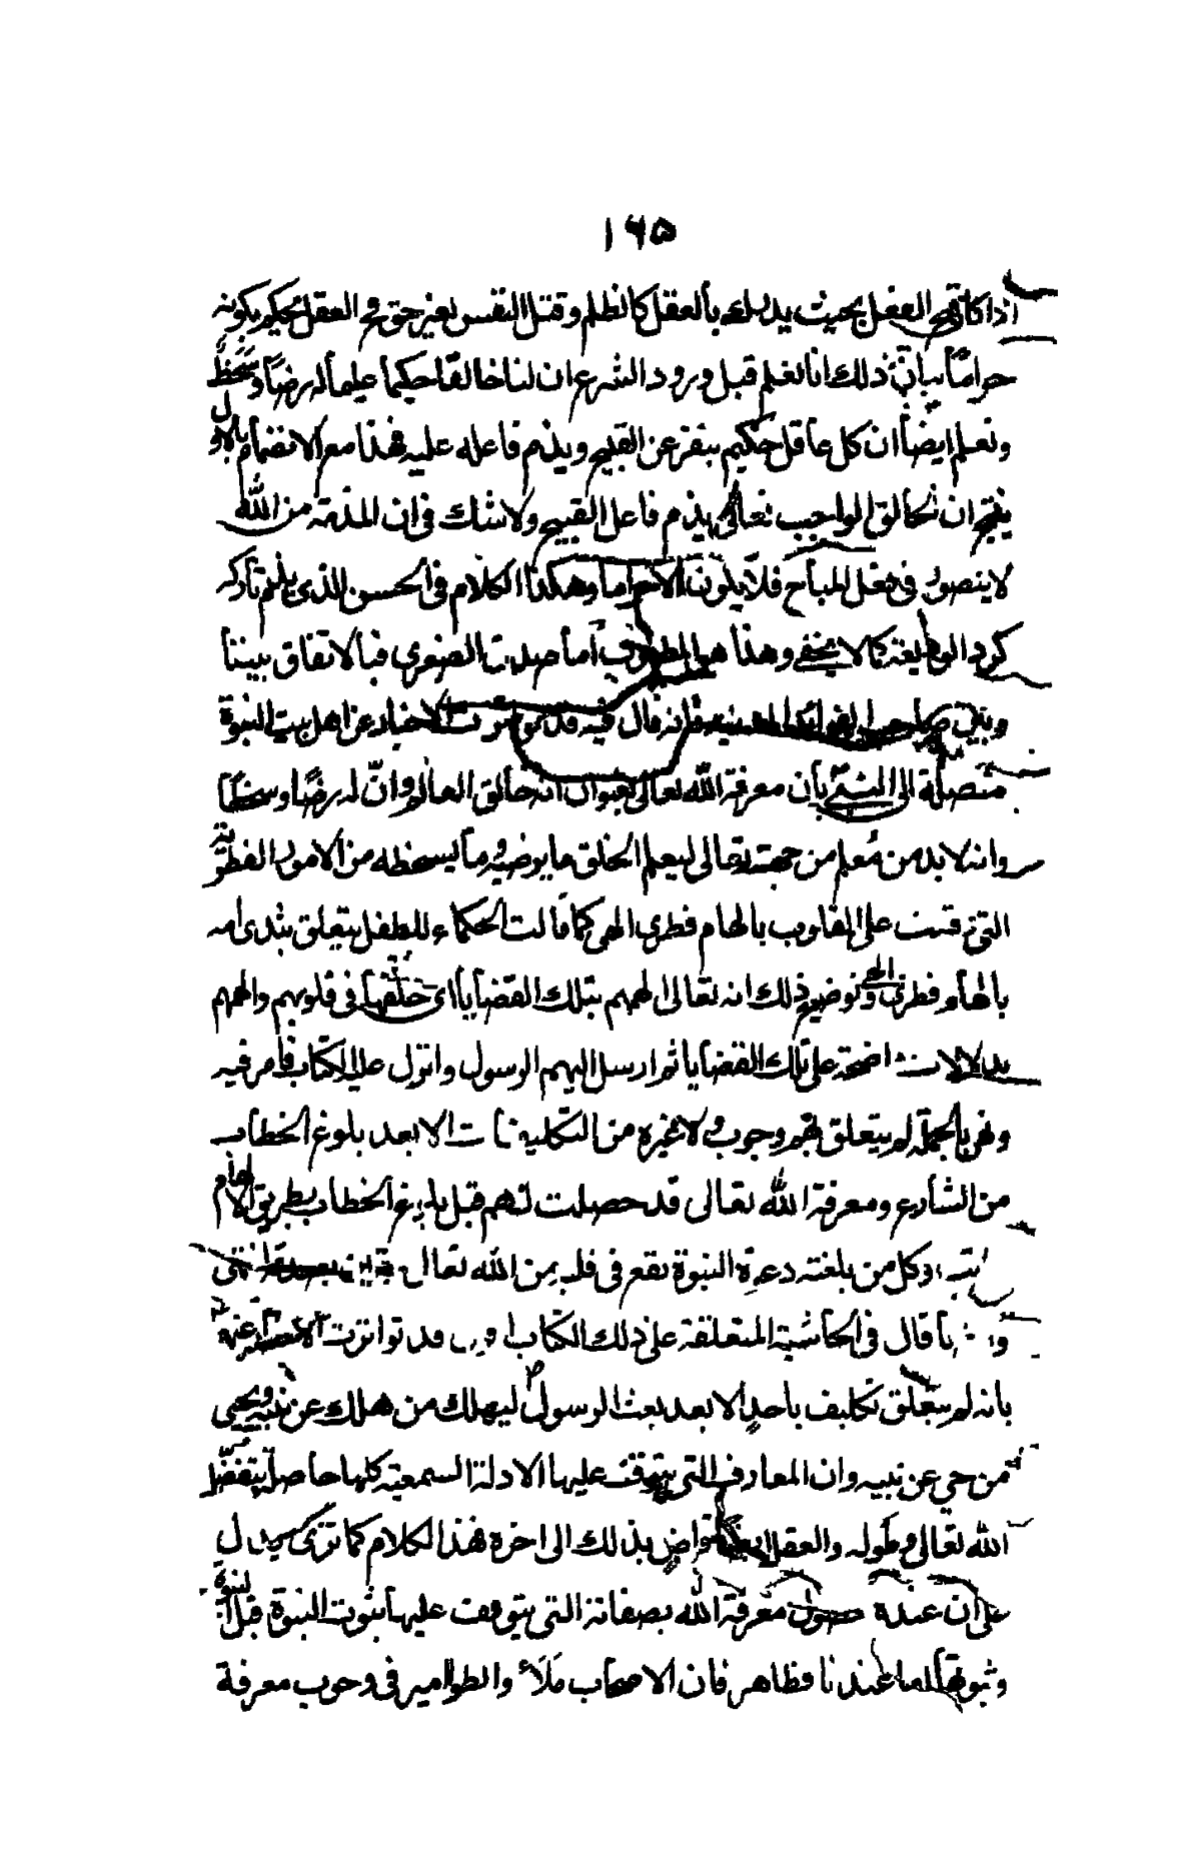 ١٦٥
اذا كان قبح الفعل بحيث يدركه بالعقل كالظلم وقتل النفس بغير حق فالعقل يحكم بكونه
حراماً بيان ذلك انا نعلم قبل ورود الشرع ان لنا خالقاً حكيماً عليماً له رضاً وسخطاً
ونعلم ايضاً ان كل عاقل حكيم يتنفر عن القبيح ويذم فاعله عليه فهذا مع الانضمام بالاول
ينتج ان الخالق الواجب تعالى يذم فاعل القبيح ولا شك فى ان المذمة من الله
لا يتصور فى فعل المباح فلا يكون الا حراما وهكذا الكلام فى الحسن الذى يلزم تاركه
كرد الوديعة كما لا يخفى وهذا هو المطلوب اما صدق الصغرى فبالاتفاق بيننا
وبين صاحب الفوائد المدنيه فانه قال فيه قد تواترت الاخبار عن اهل بيت النبوة
متصلة الى النبى ص بان معرفة الله تعالى بعنوان انه خالق العالم وانّ له رضاً وسخطاً
وانه لا بد من مُعلم من جهته تعالى ليعلم الخلق ما يرضيه وما يسخطه من الامور الفطرية
التى وقعت على القلوب بالهام فطرى الهى كما قالت الحكماء للطفل يتعلق بثدى امه
بالهام فطرى الهى وتوضيح ذلك انه تعالى الهمهم بتلك القضايا اى خلقها فى قلوبهم والهمهم
بدلالات واضحة على تلك القضايا ثم ارسل اليهم الرسول وانزل عليه الكتاب فامر فيه
ونهى بالجملة لم يتعلق بهم وجوب ولا غيره من التكليفات الا بعد بلوغ الخطاب
من الشارع ومعرفة الله تعالى قد حصلت لهم قبل بلوغ الخطاب بطريق الالهام
وكل من بلغته دعوة النبوة يقع فى قلبه من الله تعالى انتهى
قال فى الحاشية المتعلقة على ذلك الكتاب قد تواترت
بانه لم يتعلق تكليف باحدٍ الا بعد بعث الرسول ص ليهلك من هلك عن بينه ويحيى
من حي عن بينه وان المعارف التى يتوقف عليها الادلة السمعية كلها حاصل بتفضل
الله تعالى وطَوله والعقل بذلك الى اخره فهذا الكلام كما ترى يدل
على ان عنده حصول معرفة الله بصفاته التى يتوقف عليها ثبوت النبوة قبل النبوة
وثبوتها اما عندنا فظاهر فان الاصحاب مَلَأ والطوامير فى وجوب معرفة